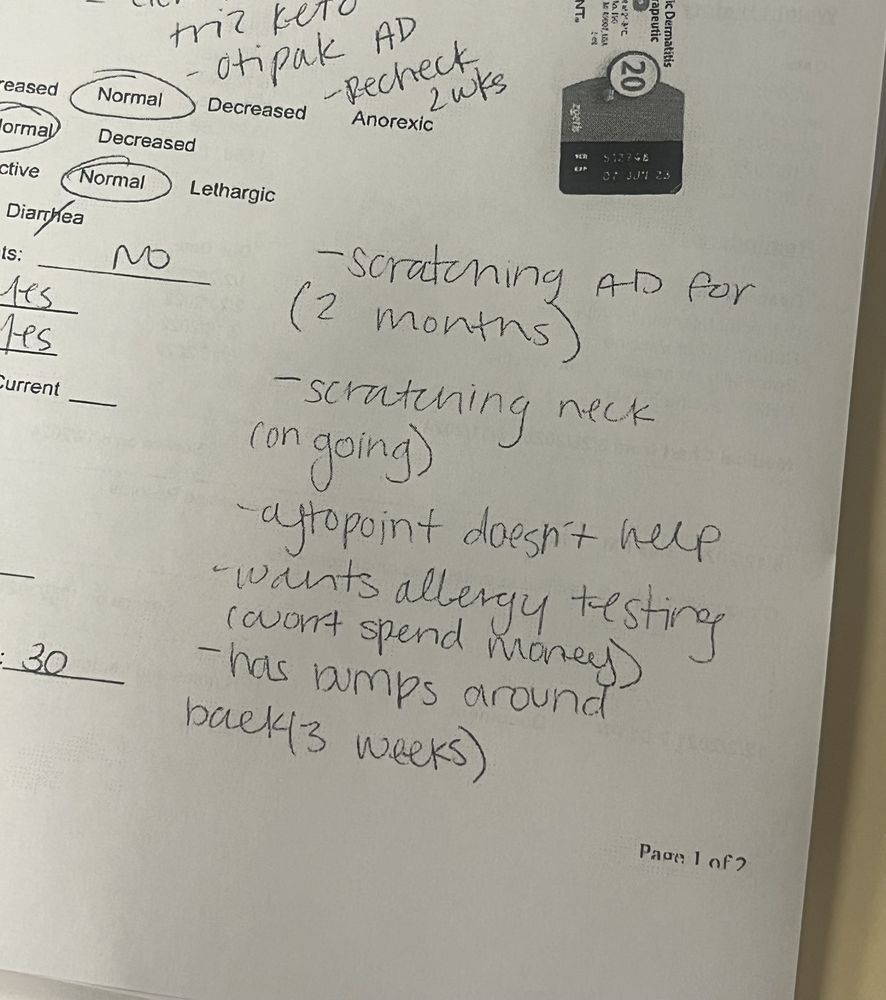 triz keto
- otipak AD
- Recheck
2 wks
reased Normal Decreased Anorexic
ormal Decreased
ctive Normal Lethargic
Diarrhea
ts: NO
Yes
Yes
Current
30
ic Dermatitis
rapeutic
NT.
20
zoetis
SER 512748
EXP 07 JUN 23
- scratching AD for
(2 months)
- scratching neck
(on going)
- cytopoint doesn't help
- wants allergy testing
(won't spend money)
- has bumps around
back (3 weeks)
Page 1 of 2